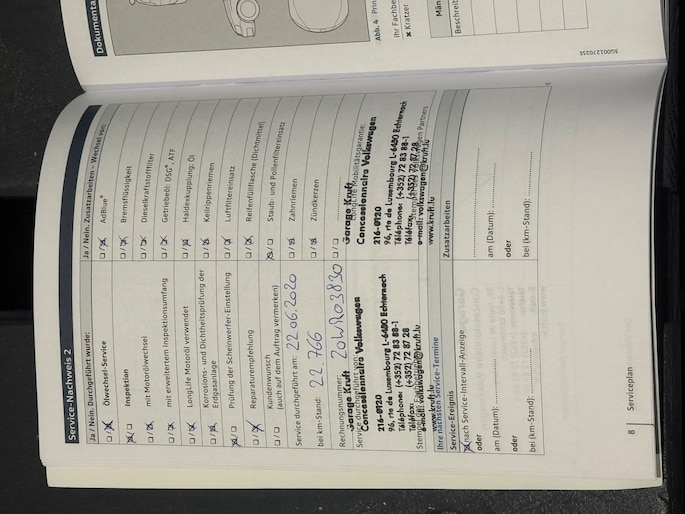 Service-Nachweis 2
Ja / Nein. Durchgeführt wurde:
Ölwechsel-Service
Inspektion
mit Motorölwechsel
mit erweitertem Inspektionsumfang
LongLife Motoröl verwendet
Korrosions- und Dichtheitsprüfung der
Erdgasanlage
Prüfung der Scheinwerfer-Einstellung
Reparaturempfehlung
Kundenwunsch
(auch auf dem Auftrag vermerken)
Service durchgeführt am: 22.06.2020
bei km-Stand: 22 766
Rechnungsnummer:
Garage Kruft
Concessionnaire Volkswagen
216-0120
96, rte de Luxembourg L-6480 Echternach
Téléphone: (+352) 72 83 88-1
Téléfax: (+352) 72 87 28
e-mail: volkswagen@kruft.lu
www.kruft.lu
Ja / Nein. Zusatzarbeiten – Wechsel von:
AdBlue®
Bremsflüssigkeit
Dieselkraftstofffilter
Getriebeöl: DSG®, ATF
Haldexkupplung: Öl
Keilrippenriemen
Luftfiltereinsatz
Reifenfüllflasche (Dichtmittel)
Staub- und Pollenfiltereinsatz
Zahnriemen
Zündkerzen
LongLife Mobilitätsgarantie:
Garage Kruft
Concessionnaire Volkswagen
216-0120
96, rte de Luxembourg L-6480 Echternach
Téléphone: (+352) 72 83 88-1
Téléfax: (+352) 72 87 28
e-mail: volkswagen@kruft.lu
www.kruft.lu
Ihre nächsten Service-Termine
Service-Ereignis
nach Service-Intervall-Anzeige
oder
am (Datum):
oder
bei (km-Stand):
Zusatzarbeiten
am (Datum):
oder
bei (km-Stand):
8
Serviceplan
Abb. 4
Ihr Fachbe
Kratzer
Beschreit
3G0012702SE